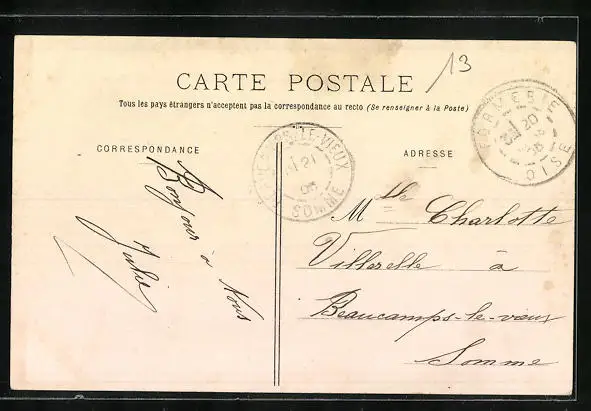 13
CARTE POSTALE
Tous les pays étrangers n'acceptent pas la correspondance au recto (Se renseigner à la Poste)
CORRESPONDANCE
ADRESSE
FORMERIE
20
OISE
LE-VIEUX
21
05
SOMME
Bonjour à Vous
Julie
Mlle Charlotte
Villerelle à
Beaucamps-le-vieux
Somme